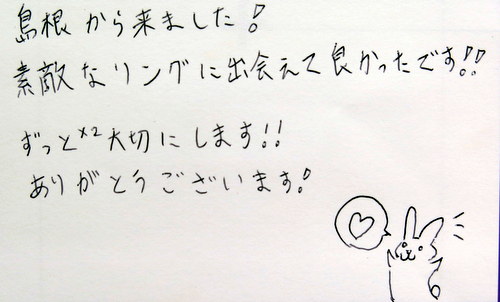 島根から来ました!
素敵なリングに出会えて良かったです!!
ずっと×2大切にします!!
ありがとうございます!